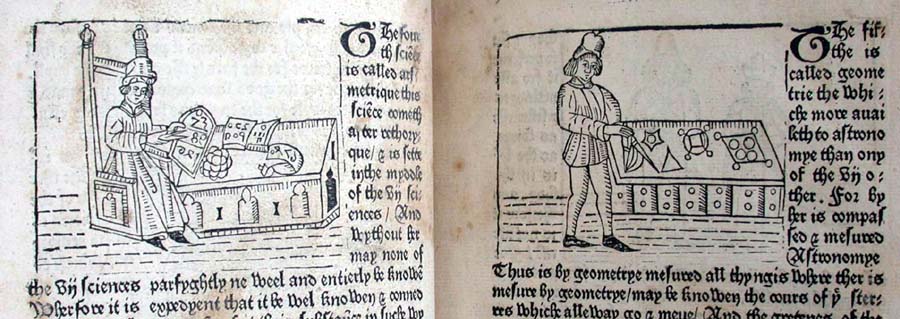 The four
th sciēce
is called ars
metrique this
sciēce cometh
after rethory-
que/ & is sette
in the myddle
of the vij sci-
ences/ And
wythout her
may none of
the vij sciences parfyghtly ne weel and entierly be knowē
Wherfore it is expedyent that it be wel knowen & conned
The fif-
the is
called geome
trie the whi-
che more auai
leth to astrono
mye than ony
of the vij o-
ther. For by
her is compas
sed & mesured
Astronomye
Thus is by geometrye mesured all thyngis where ther is
mesure by geometrye/may be knowen the cours of yͤ ster-
res whiche alleway go & meue/ And the gretnes of the